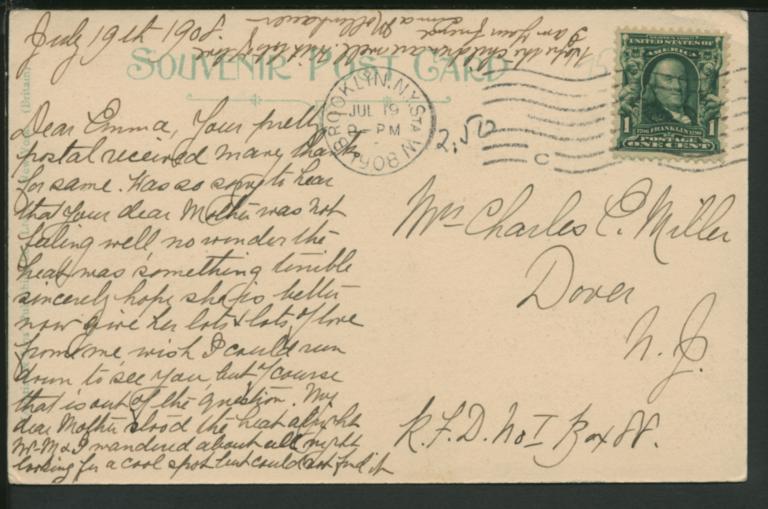 July 19th 1908.
SOUVENIR POST CARD
Dear Emma, Your pretty
postal received many thanks
for same. Was so sorry to hear
that your dear Mother was not
feeling well no wonder the
heat was something terrible
sincerely hope she is better
now give her lots & lots of love
from me wish I could run
down to see you, but of course
that is out of the question. My
dear Mother stood the heat alright
Mr. M & I wandered about all night
looking for a cool spot but could not find it
the children are well with lots of love
I am your friend
Mollenhauer
BROOKLYN, N.Y. STA W.
JUL 19
PM
1908
C
2.50
UNITED STATES OF
AMERICA
FRANKLIN
1 1
POSTAGE
ONE CENT
Mrs Charles E. Miller
Dover
N. J.
R. F. D. No 1 Box 88.